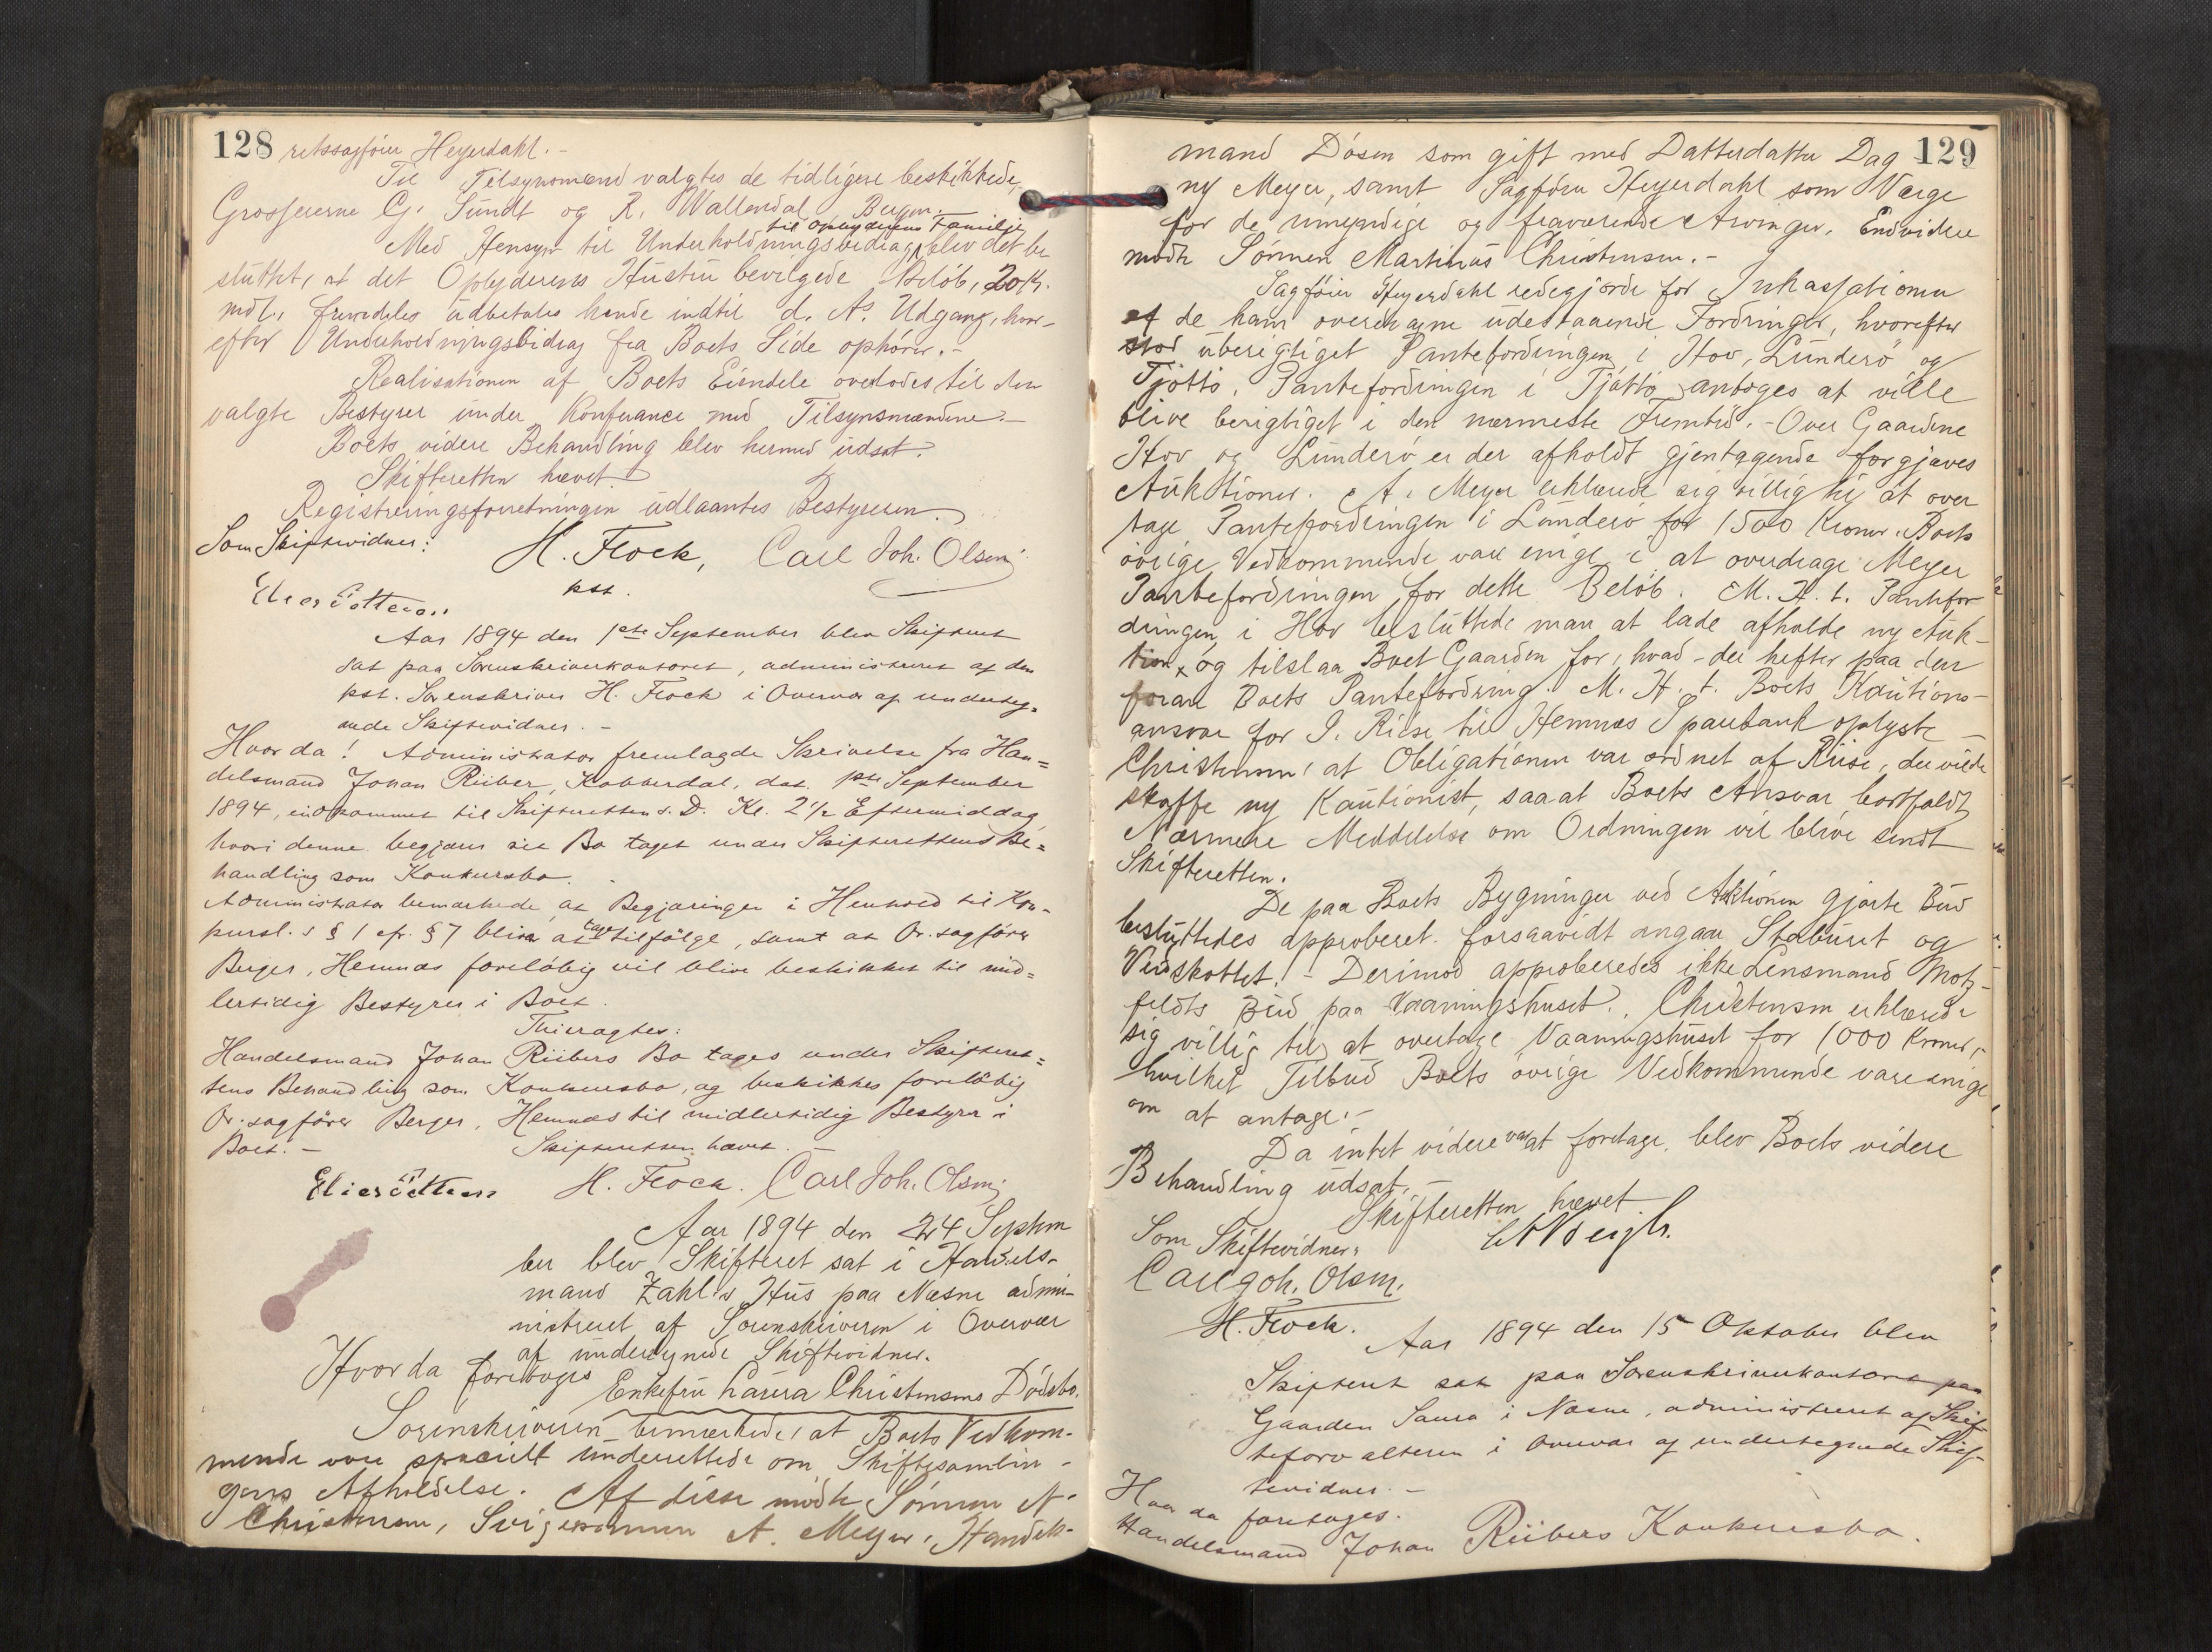 128 retssagfører Heyerdahl.-
Til Tilsynsmænd valgtes de tidligere beskikkede,
Grossererne G. Sundt og R. Wallendal, Bergen.
til Opbyderens Familje
Med Hensyn til Underholdningsbidrag blev det be
sluttet, at det Opbyderens Hustru bevilgede Beløb, 20 Kr.
mdl., fremdeles udbetales hende indtil d. A.s Udgang, hvor-
efter Underholdningsbidrag fra Boets Side ophører.-
Realisationen af Boets Eiendele overlodes til den
valgte Bestyrer under Konferance med Tilsynsmændene.-
Boets videre Behandling blev hermed udsat.
Skifteretten hævet.
Registreringsforretningen udlaantes Bestyreren.
Som Skiftevidner: H. Flock, Carl Joh. Olsen
kst.
Elias
Aar 1894 den 1ste September blev Skifteret
sat paa Sorenskriverkontoret, administreret af den
kst. Sorenskriver H. Flock i Overvær af underteg=
nede Skiftevidner.-
Hvor da! Administrator fremlagde Skrivelse fra Han=
delsmand Johan Riiber, Kobberdal, dat. 1ste September
1894, indkommet til Skifteretten s. D. Kl. 2 1/2 Eftermiddag,
hvori denne begjærer sit Bo taget under Skifterettens Be=
handling som Konkursbo.
Administrator bemærkede, at Begjæringen i Henhold til Kon-
kursl. s § 1 cfr. § 7 bliver at tage tilfølge, samt at Or. sagfører
Berger, Hemnæs foreløbig vil blive beskikket til mid=
lertidig Bestyrer i Boet.
Thi eragtes:
Handelsmand Johan Riibers Bo tages under Skifteret=
tens Behandling som Konkursbo, og beskikkes foreløbig
Or. sagfører Berger, Hemnæs til midlertidig Bestyrer i
Boet.- Skifteretten hævet.-
Elias H. Flock. Carl Joh. Olsen
Aar 1894 den 24 Septem
ber blev Skifteret sat i Handels-
mand Zahl's Hus paa Næsne admi-
nistreret af Sorenskriveren i Overvær
af undertegnede Skiftevidner.
Hvor da foretoges Enkefru Laura Christensens Dødsbo.
Sorenskriveren bemærkede, at Boets Vedkom-
mende vare specielt underrettede om Skiftesamlin-
gens Afholdelse. Af disse mødte Sønnen N.
Christensen, Svigersønnen A. Meyer, Handels-
129
mand Døsen som gift med Datterdatter Dag
ny Meyer, samt Sagfører Heyerdahl som Værge
for de umyndige og fraværende Arvinger. Endvidere
mødte Sønnen Martinus Christensen.-
Sagfører Heyerdahl redegjorde for Inkassationen
af de ham overdragne udestaaende Fordringer, hvorefter
stod uberigtiget Pantefordringen i Hov, Lunderø og
Tjøttø. Pantefordringen i Tjøttø antoges at ville
blive berigtiget i den nærmeste Fremtid.- Over Gaardene
Hov og Lunderø er der afholdt gjentagende forgjæves
Auktioner. A. Meyer erklærede sig villig til at over
tage Pantefordringen i Lunderø for 1500 Kroner. Boets
øvrige Vedkommende vare enige i at overdrage Meyer
Pantefordringen for dette Beløb. M. H. t. Pantefor
dringen i Hov besluttede man at lade afholde ny Auk-
tion, og tilslaa Boet Gaarden for, hvad der hefter paa den
foran Boets Pantefordring. M. H. t. Boets Kautions-
ansvar for I. Riise til Hemnæs Sparebank oplyste
Christensen, at Obligationen var ordnet af Riise, der vilde
skaffe ny Kautionist, saaat Boets Ansvar bortfaldt
Nærmere Meddelelse om Ordningen vil blive sendt
Skifteretten.
De paa Boets Bygninger ved Auktionen gjorte Bud
besluttedes approberet forsaavidt angaar Staburet og
Vedskottet.- Derimod approberedes ikke Lensmand Motz-
feldts Bud paa Vaaningshuset. Christensen erklærede
sig villig til at overtage Vaaningshuset for 1000 Kroner,
hvilket Tilbud Boets øvrige Vedkommende vare enige
om at antage.-
Da intet videre var at foretage, blev Boets videre
Behandling udsat.-
Skifteretten hævet
Som Skiftevidner:
Carl Joh. Olsen.
H. Flock.
Aar 1894 den 15 Oktober blev
Skifteret sat paa Sorenskriverkontoret paa
Gaarden Saura i Næsne, administreret af Skif-
teforvalteren i Overvær af undertegnede Skif-
tevidner.-
Hvor da foretoges.
Handelsmand Johan Riibers Konkursbo.